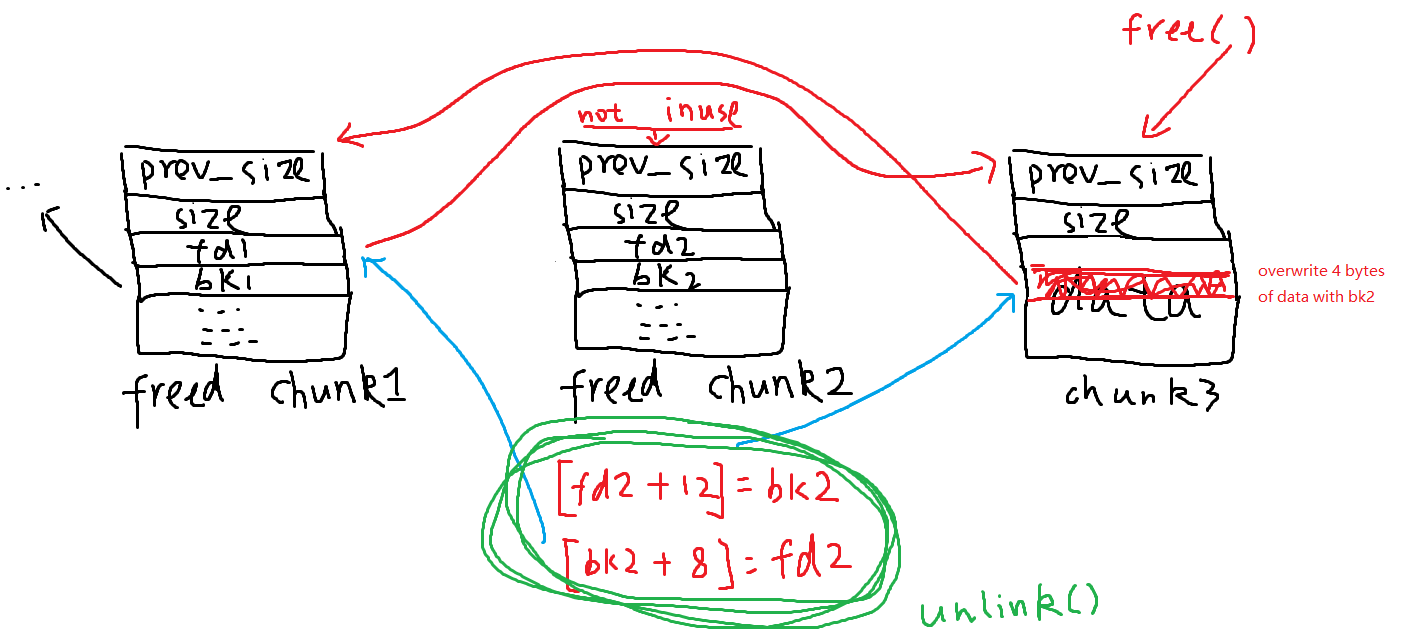 free()
not inuse
...
prev_size
size
fd1
bk1
freed chunk1
prev_size
size
fd2
bk2
freed chunk2
prev_size
size
data
chunk3
overwrite 4 bytes
of data with bk2
[fd2 + 12] = bk2
[bk2 + 8] = fd2
unlink()